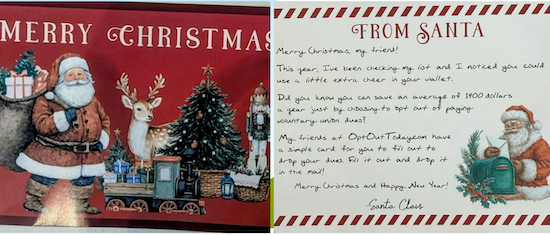 MERRY CHRISTMAS
FROM SANTA
Merry Christmas, my friend!
This year, I've been checking my list and I noticed you could
use a little extra cheer in your wallet.
Did you know you can save an average of 1400 dollars
a year just by choosing to opt out of paying
voluntary union dues?
My friends at OptOutToday.com have
a simple card for you to fill out to
drop your dues. Fill it out and drop it
in the mail!
Merry Christmas and Happy New Year!
-Santa Claus